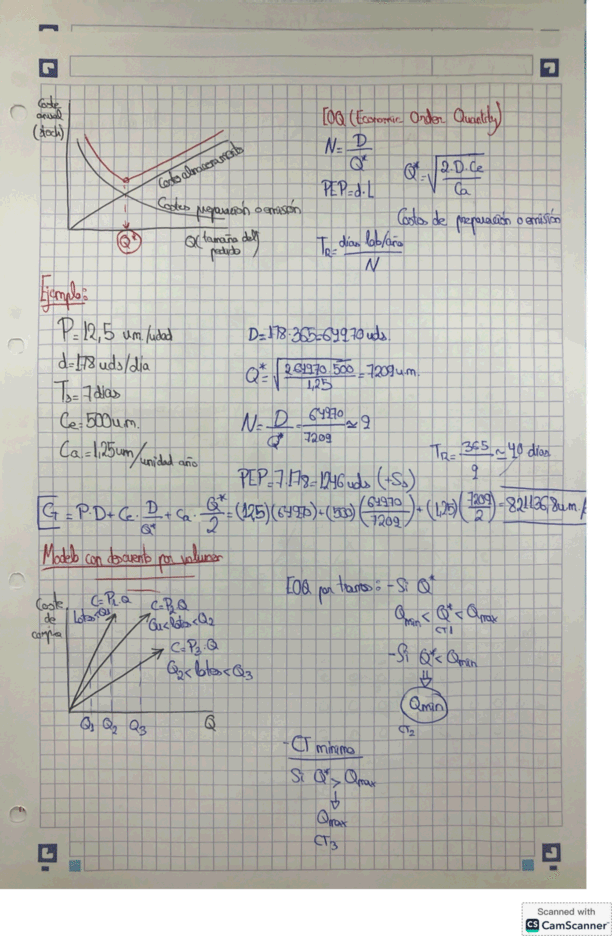 Coste
anual
(stock)
Costes almacenamiento
Costes preparación o emisión
Q*
Q (tamaña del
pedido)
EOQ (Economic Order Quantity)
N = D / Q*
Q* = √(2·D·Ce / Ca)
PEP = d·L
Costos de preparación o emisión
TR = días lab/año / N
Ejemplo:
P = 12,5 um/udad
d = 178 uds/día
Ts = 7 días
Ce = 500 um.
Ca = 1,25 um/unidad año
D = 178·365 = 64970 uds.
Q* = √(2·64970·500 / 1,25) = 7209 um.
N = D / Q* = 64970 / 7209 ≃ 9
TR = 365 / 9 ≃ 40 días
PEP = 7·178 = 1246 uds (+Ss)
CT = P·D + Ce · D/Q* + Ca · Q*/2 = (12,5)(64970) + (500)(64970/7209) + (1,25)(7209/2) = 821136,8 um/
Modelo con descuento por volumen
Coste
de
compra
C = P1·Q
lotes<Q1
C = P2·Q
Q1<lotes<Q2
C = P3·Q
Q2<lotes<Q3
Q1 Q2 Q3 Q
EOQ por tramos: - Si Q*
Qmin < Q* < Qmax
CT1
- Si Q* < Qmin
Qmin
CT2
- CT mínimo
Si Q* > Qmax
Qmax
CT3
Scanned with
CS CamScanner